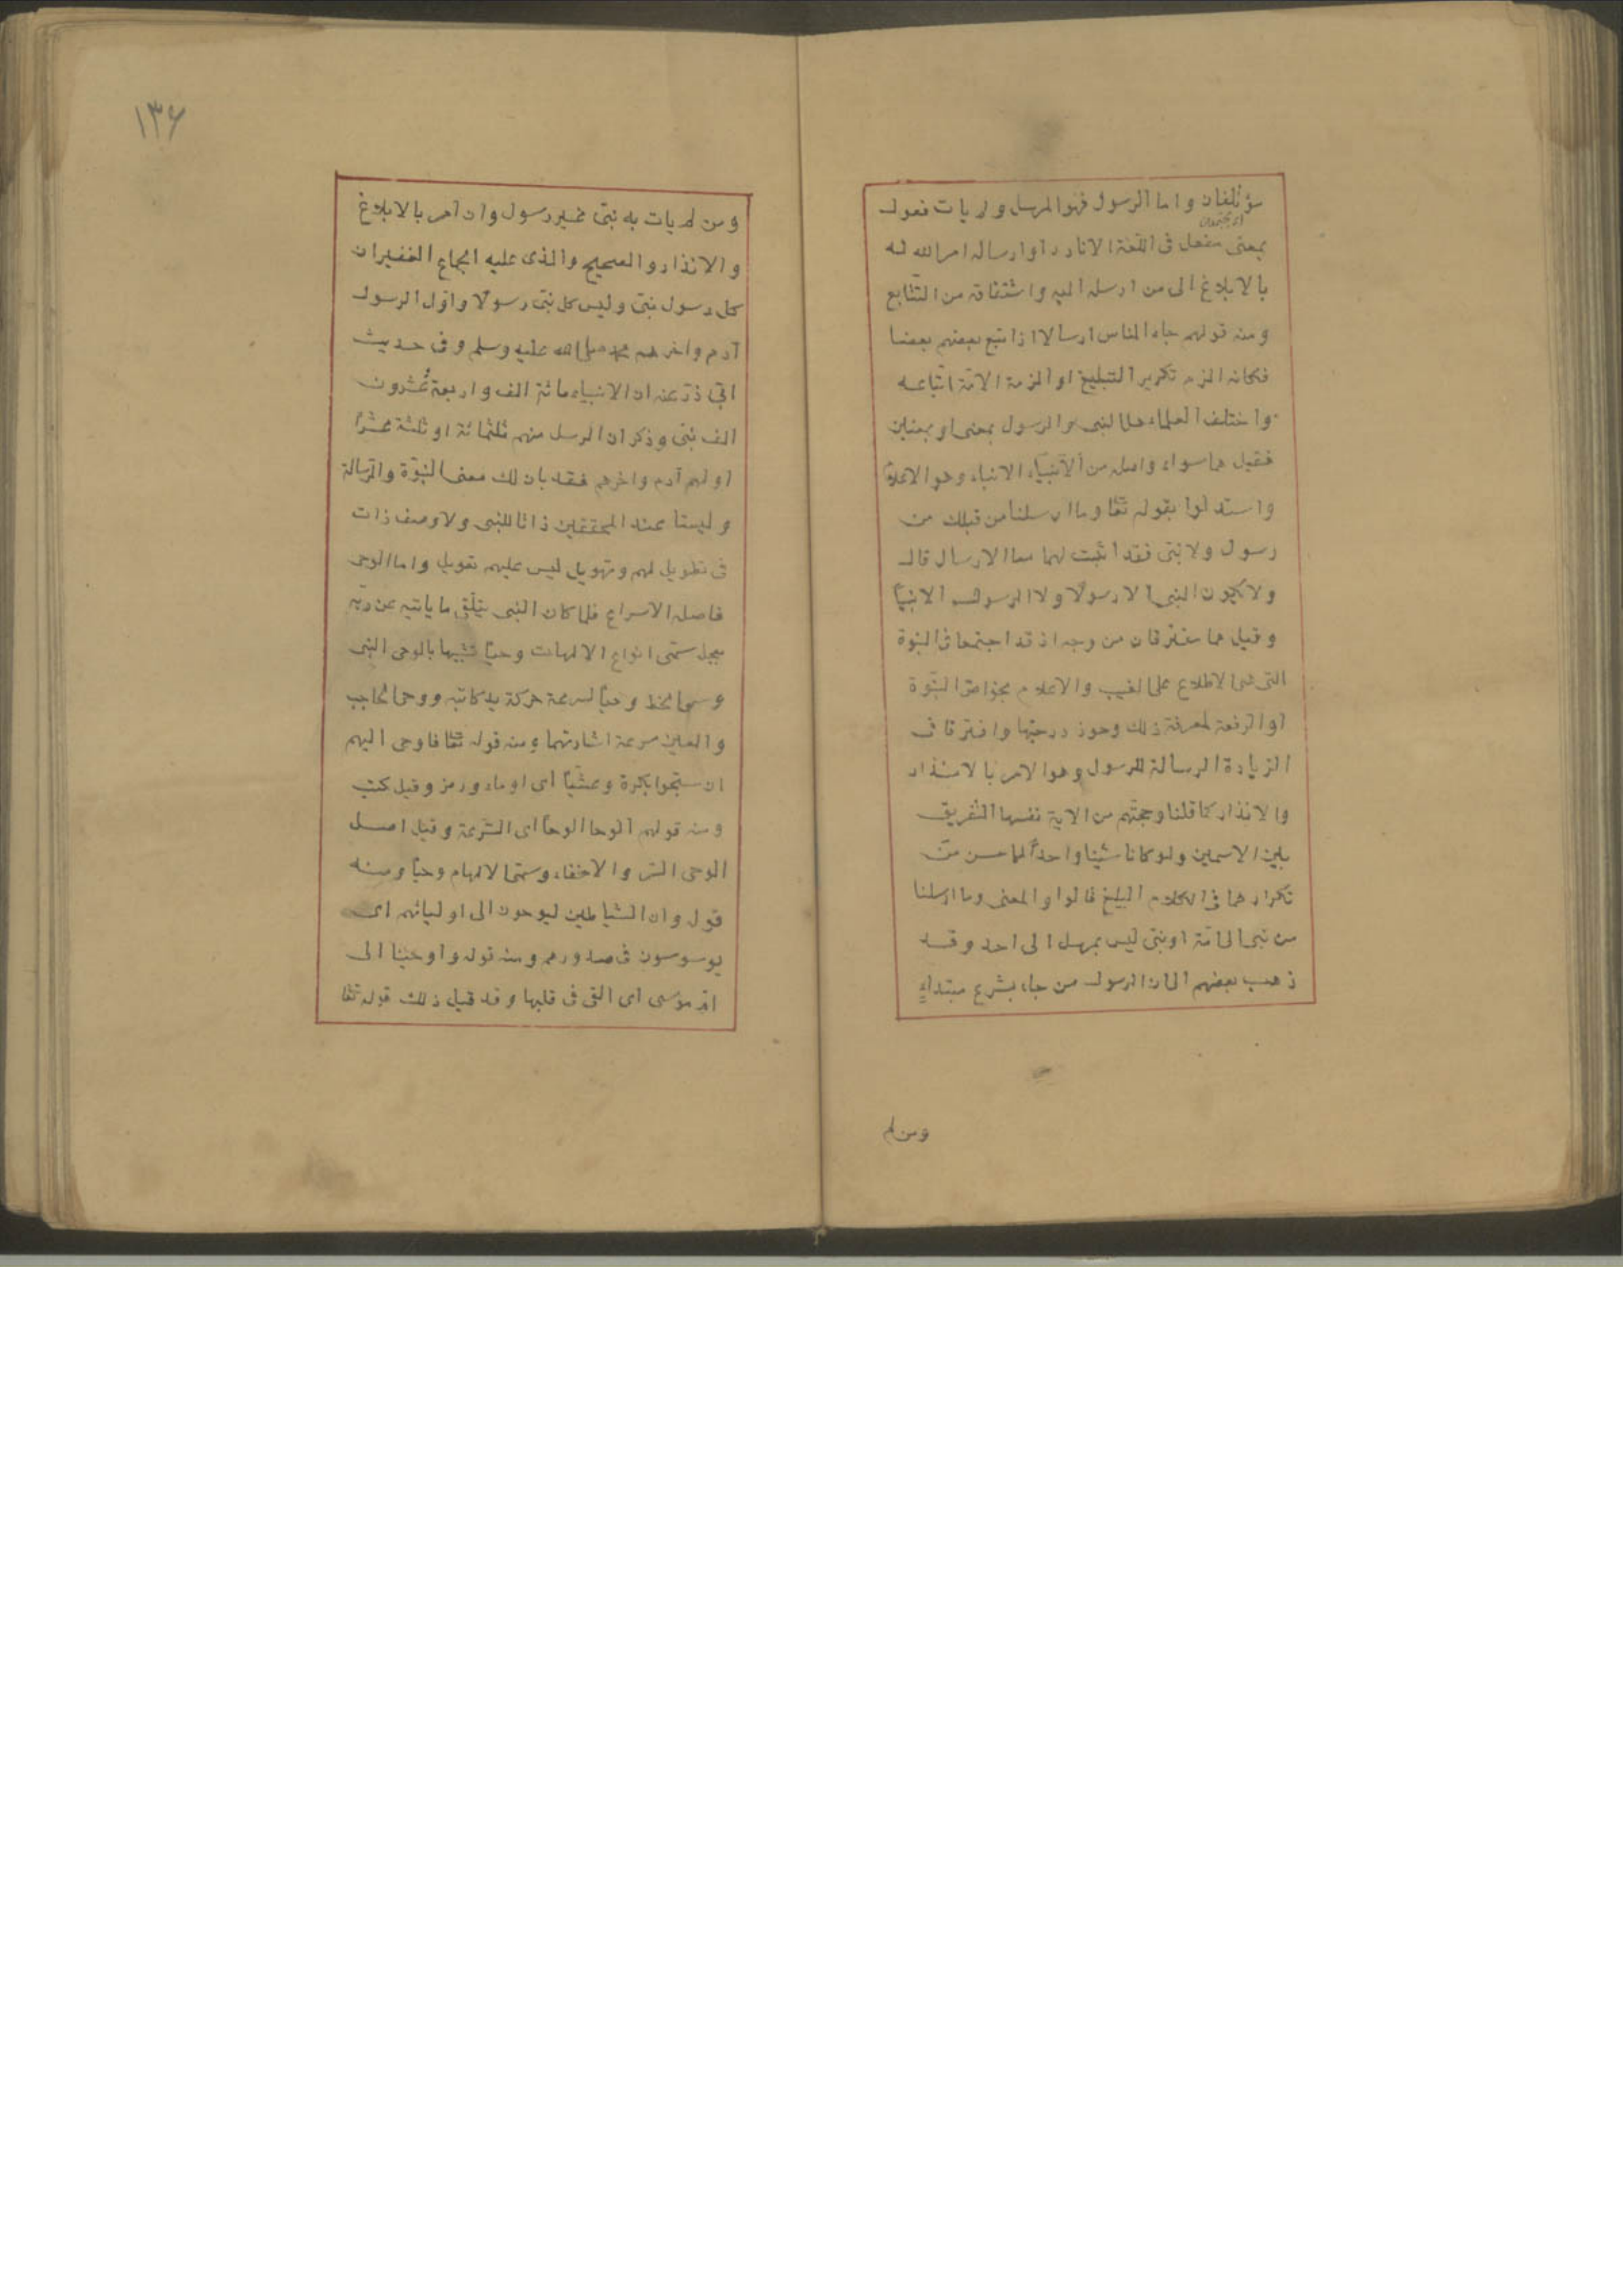 مؤتلفان واما الرسول فهو المرسل ولم يات فعول
اى مجتمعان
بمعنى مفعل فى اللغة الا نادرا وارساله امر الله له
بالابلاغ الى من ارسله اليه واشتقاقه من التتابع
ومنه قولهم جاء الناس ارسالا اذا تبع بعضهم بعضا
فكانه الزم تكرير التبليغ او الزمة الامّة اتّباعه
واختلف العلماء هل النبى والرسول بمعنى او بمعنين
فقيل هما سواء واصله من الانباء وهو الاعلام
واستدلوا بقوله تعا وما ارسلنا من قبلك من
رسول ولا نبّى فقد اثبت لهما معا الارسال قال
ولا يكون النبى الا رسولًا ولا الرسول الا نبيّا
وقيل هما مفترقان من وجه اذ قد اجتمعا فى النبوة
التى هى الاطلاع على الغيب والاعلام بخواصّ النبّوة
او الرفعة لمعرفة ذلك وحوز درجتها وافترقا فى
الزيادة الرسالة للرسول وهو الامر بالانذار
والانذار كما قلنا وحجتهم من الاية نفسها التفريق
بين الاسمين ولو كانا شيئا واحدًا لما حسن
تكرارهما فى الكلام البليغ قالوا والمعنى وما ارسلنا
من نبى الى امّة او نبى ليس بمرسل الى احد وقد
ذهب بعضهم الى ان الرسول من جاء بشرع مبتداءٍ
ومن لم
١٣٦
ومن لم يات به نبّى غير رسول وان امر بالابلاغ
والانذار والصحيح والذى عليه الجماع الغفير ان
كل رسول نبّى وليس كل نبّى رسولًا واوّل الرسول
آدم واخرهم محمد صلى الله عليه وسلم وفى حديث
ابى ذرّ عنه ان الانبياء مائة الف واربعة عُشرون
الف نبّى وذكر ان الرسل منهم ثلثمائة او ثلثة عشرًا
اولهم آدم واخرهم فقد بان لك معنى النبوّة والرّسالة
وليستا عند المحققين ذاتا للنبى ولا وصف ذات
فى تطويل لهم وتهويل ليس عليهم تعويل واما الوحى
فاصله الاسراع فلما كان النبى يتلّقى ما ياتيه عن ربّه
بعجل سمّى انواع الالهامات وحيًا تشبيها بالوحى النبى
وسمى الخط وحيًا لسرعة حركة يد كاتبه ووحى الحاجب
والعين سرعة اشارتهما ومنه قوله تعا فاوحى اليهم
ان سبّحوا بكرة وعشيّا اى اوماء ورمز وقيل كتب
ومنه قولهم الوحا الوحا اى السّرعة وقيل اصل
الوحى السّر والاخفاء وسمّى الالهام وحيا ومنه
قوله وان الشياطين ليوحون الى اوليائهم اى
يوسوسون فى صدورهم ومنه قوله واوحينا الى
امّ موسى اى القى فى قلبها وقد قيل ذلك قوله تعا